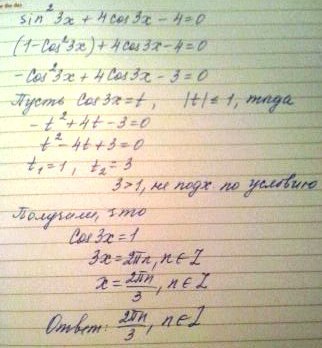 sin²3x + 4cos3x - 4 = 0
(1-cos²3x) + 4cos3x - 4 = 0
-cos²3x + 4cos3x - 3 = 0
Пусть cos3x = t, |t| ≤ 1, тогда
-t² + 4t - 3 = 0
t² - 4t + 3 = 0
t₁ = 1, t₂ = 3
3 > 1, не подх по условию
Получили, что
cos3x = 1
3x = 2πn, n ∈ Z
x = 2πn/3, n ∈ Z
Ответ: 2πn/3, n ∈ Z